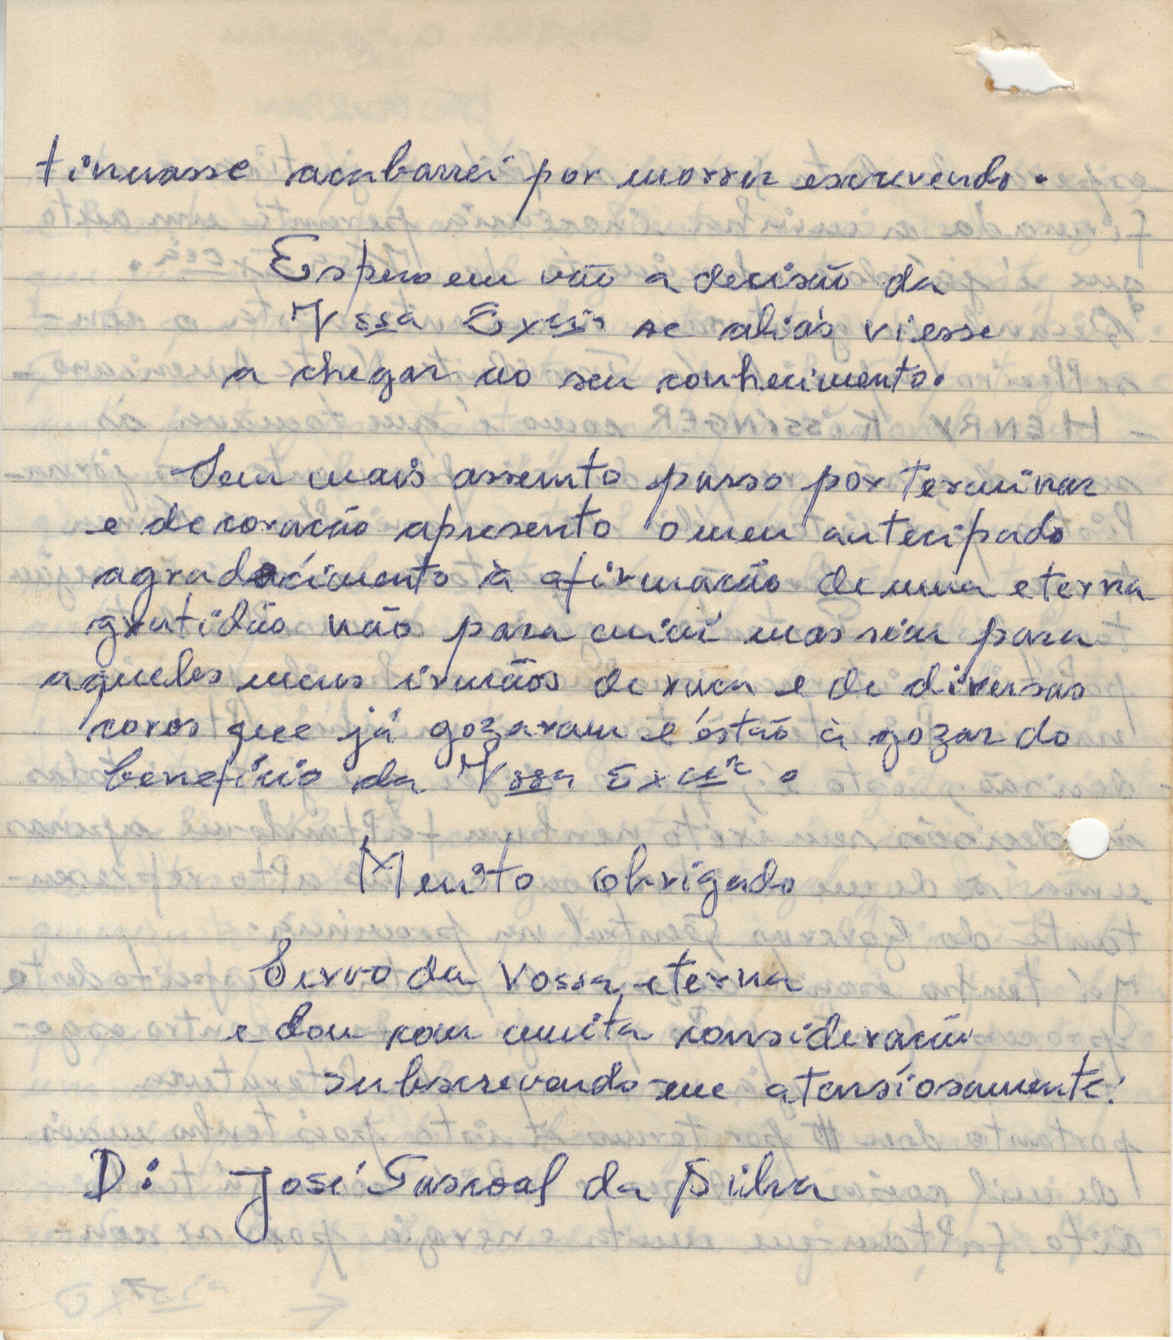 tinuasse acabarrei por morrer escrevendo.
Espero em vão a decisão da
Vssa Excia se aliás viesse
a chegar ao seu conhecimento.
Sem mais assunto passo por terminar
e de coração apresento o meu antecipado
agradecimento à afirmação de uma eterna
gratidão não para mim mas sim para
aqueles meus irmãos de raça e de diversas
cores que já gozaram e éstão à gozar do
beneficio da Vssa Excia.
Muito obrigado
Servo da Vossa eterna
e dou com muita consideração
subscrevendo-me atensiosamente.
D: José Pascoal da Silva